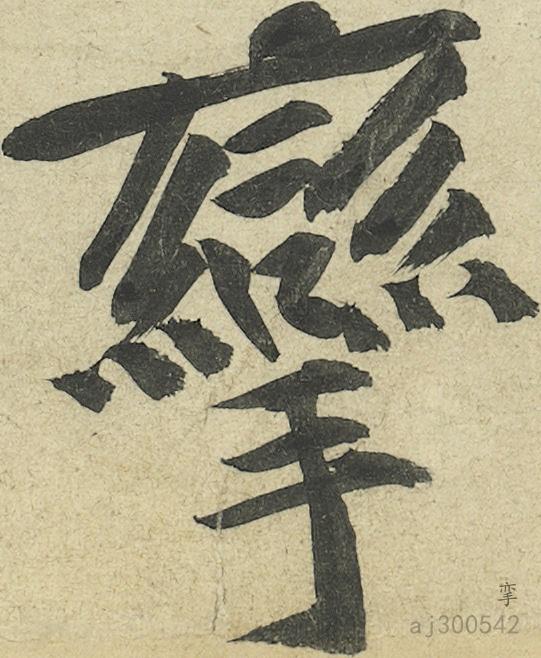 攣
挛
aj300542